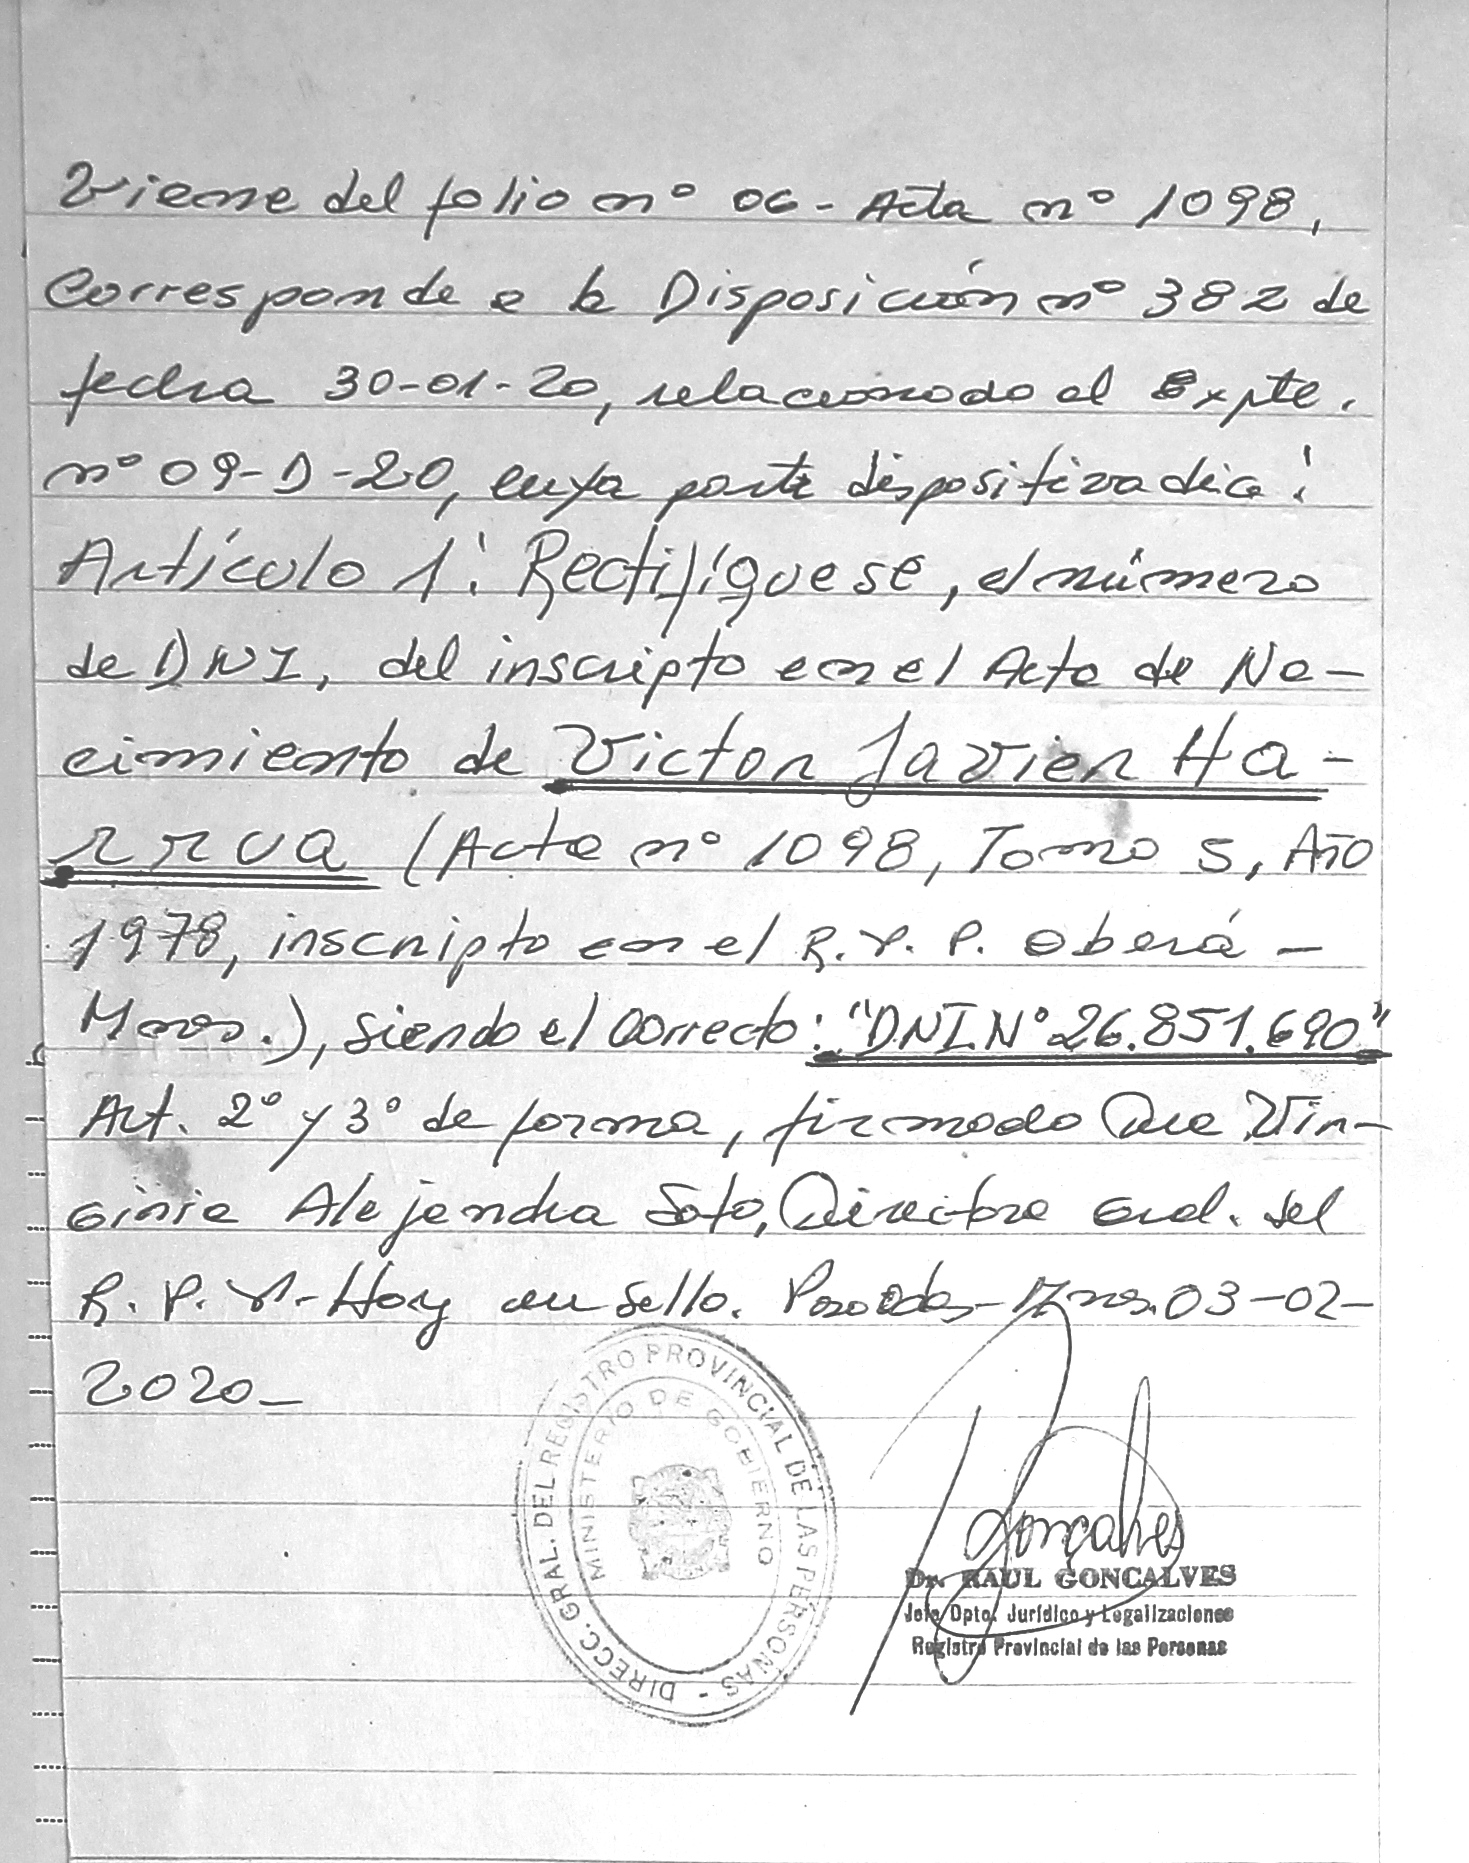 Viene del folio nº 06 - Acta nº 1098,
Corresponde a la Disposición nº 382 de
fecha 30-01-20, relacionado al Expte.
nº 09-D-20, cuya parte dispositiva dice:
Artículo 1: Rectifíquese, el número
de DNI, del inscripto en el Acta de Na-
cimiento de Victor Javier Ha-
rrua (Acta nº 1098, Tomo 5, Año
1978, inscripto en el R. P. P. Oberá -
Mnes.), siendo el correcto: "DNI.Nº 26.851.690"
Art. 2º y 3º de forma, firmado Dra Vir-
ginia Alejandra Soto, Directora Gral. del
R. P. P. - Hay un sello. Posadas - Mnes. 03-02-
2020-
DIRECC. GRAL. DEL REGISTRO PROVINCIAL DE LAS PERSONAS -
MINISTERIO DE GOBIERNO
Goncalves
Dr. RAUL GONCALVES
Jefe Dpto. Jurídico y Legalizaciones
Registro Provincial de las Personas